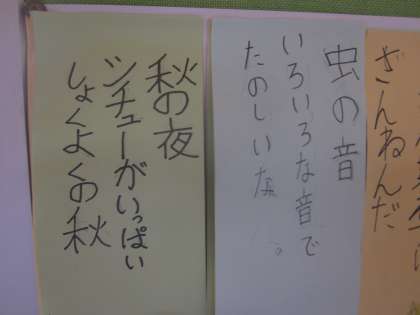 ざんねんだ
虫の音
いろいろな音で
たのしいな。
秋の夜
シチューがいっぱい
しょくよくの秋